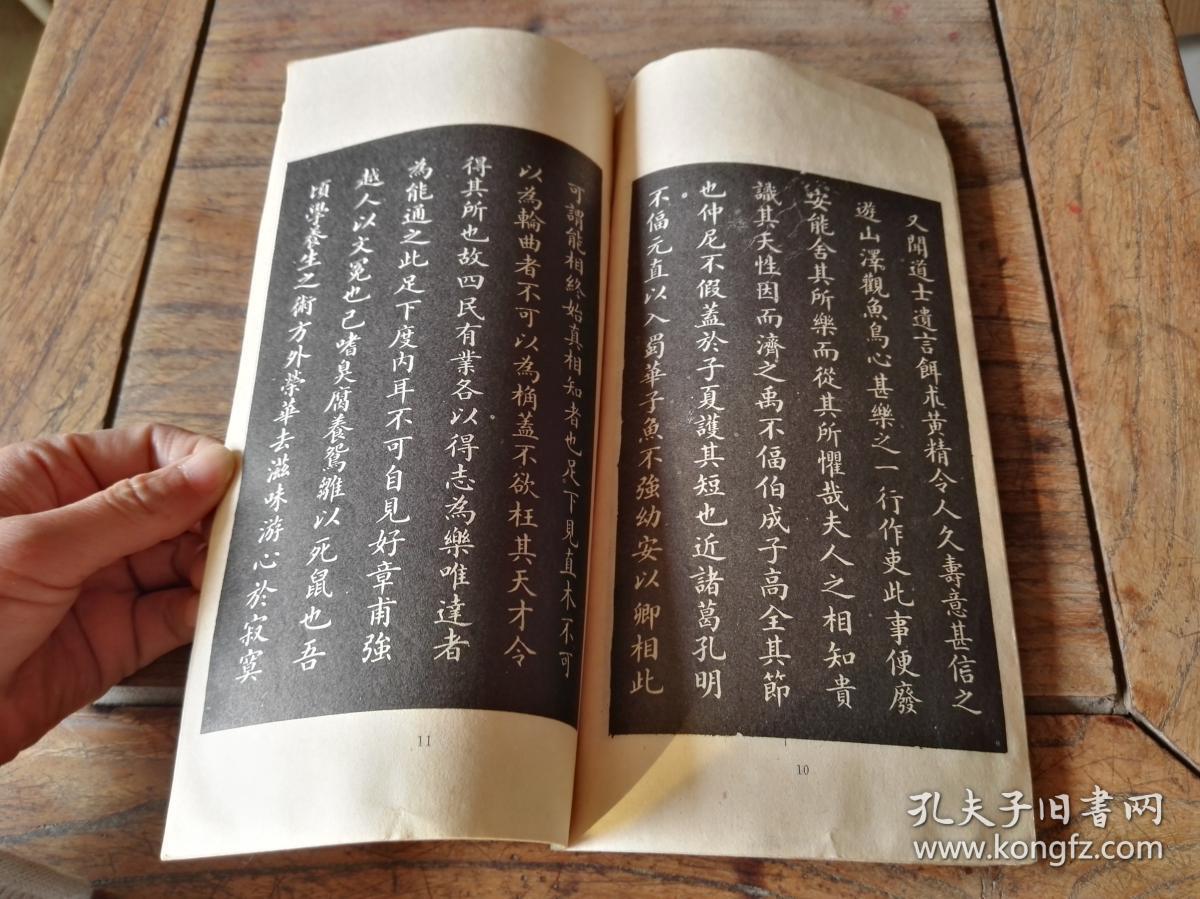 又聞道士遺言餌朮黄精令人久壽意甚信之
遊山澤觀魚鳥心甚樂之一行作吏此事便廢
安能舍其所樂而從其所懼哉夫人之相知貴
識其天性因而濟之禹不偪伯成子高全其節
也仲尼不假蓋於子夏護其短也近諸葛孔明
不偪元直以入蜀華子魚不強幼安以卿相此
10
可謂能相終始真相知者也足下見直木不可
以為輪曲者不可以為桷蓋不欲枉其天才令
得其所也故四民有業各以得志為樂唯達者
為能通之此足下度内耳不可自見好章甫強
越人以文冕也己嗜臭腐養鴛雛以死鼠也吾
頃學養生之術方外榮華去滋味游心於寂寞
11
孔夫子旧書网
www.kongfz.com